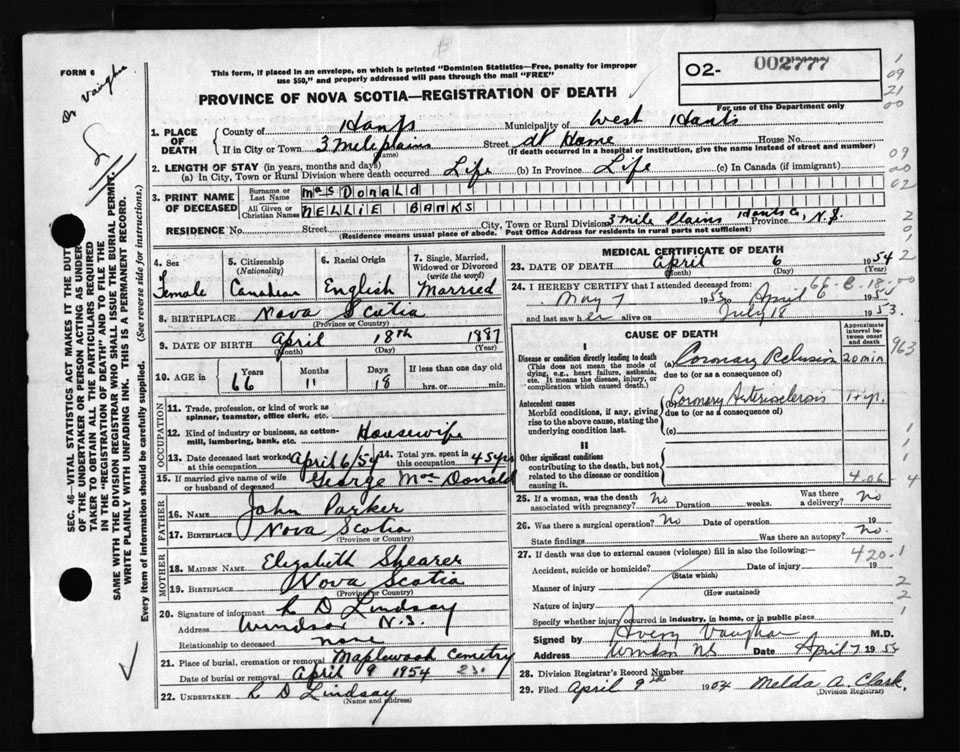 FORM 6
This form, if placed in an envelope, on which is printed "Dominion Statistics—Free, penalty for improper
use $50," and properly addressed will pass through the mail "FREE"
02- 002777
For use of the Department only
PROVINCE OF NOVA SCOTIA—REGISTRATION OF DEATH
Dr Vaughn
SEC. 46—VITAL STATISTICS ACT MAKES IT THE DUTY
OF THE UNDERTAKER OR PERSON ACTING AS UNDER-
TAKER TO OBTAIN ALL THE PARTICULARS REQUIRED
IN THE "REGISTRATION OF DEATH" AND TO FILE THE
SAME WITH THE DIVISION REGISTRAR WHO SHALL ISSUE THE BURIAL PERMIT.
WRITE PLAINLY WITH UNFADING INK. THIS IS A PERMANENT RECORD.
Every item of information should be carefully supplied. (See reverse side for instructions.)
1. PLACE OF DEATH
County of Hants Municipality of West Hants
If in City or Town 3 Mile plains Street At Home House No.
(Name) (If death occurred in a hospital or institution, give the name instead of street and number)
2. LENGTH OF STAY (in years, months and days)
(a) In City, Town or Rural Division where death occurred Life (b) In Province Life (c) In Canada (if immigrant)
3. PRINT NAME OF DECEASED
Surname or Last Name MacDONALD
All Given or Christian Names NELLIE BANKS
RESIDENCE No. Street City, Town or Rural Division 3 Mile Plains Hants Co, Province N.S.
(Residence means usual place of abode. Post Office Address for residents in rural parts not sufficient)
4. Sex Female
5. Citizenship (Nationality) Canadian
6. Racial Origin English
7. Single, Married, Widowed or Divorced (write the word) Married
8. BIRTHPLACE Nova Scotia
(Province or Country)
9. DATE OF BIRTH April 18th 1887
(Month) (Day) (Year)
10. AGE in Years 66 Months 11 Days 18 If less than one day old hrs. or min.
OCCUPATION
11. Trade, profession, or kind of work as
spinner, teamster, office clerk, etc.
12. Kind of industry or business, as cotton-
mill, lumbering, bank, etc. Housewife
13. Date deceased last worked at this occupation April 6/54 14. Total yrs. spent in this occupation 45 yrs
15. If married give name of wife or husband of deceased George MacDonald
FATHER
16. NAME John Parker
17. BIRTHPLACE Nova Scotia
(Province or Country)
MOTHER
18. MAIDEN NAME Elizabeth Shearer
19. BIRTHPLACE Nova Scotia
(Province or Country)
20. Signature of informant R D Lindsay
Address Windsor N.S.
Relationship to deceased none
21. Place of burial, cremation or removal Maplewood Cemetry
Date of burial or removal April 9 1954
22. UNDERTAKER R D Lindsay
(Name and address)
MEDICAL CERTIFICATE OF DEATH
23. DATE OF DEATH April 6 1954
(Month) (Day) (Year)
24. I HEREBY CERTIFY that I attended deceased from:
66-B-18-00
May 7 1953 to April 6 195
and last saw her alive on July 18 1953.
CAUSE OF DEATH
Approximate interval between onset and death
I
Disease or condition directly leading to death
(This does not mean the mode of
dying, e.g., heart failure, asthenia,
etc. It means the disease, injury, or
complication which caused death.)
(a) Coronary Occlusion 20 min
due to (or as a consequence of)
Antecedent causes
Morbid conditions, if any, giving
rise to the above cause, stating the
underlying condition last.
(b) Coronary Arteriosclerosis 1 + yr.
due to (or as a consequence of)
(c)
II
Other significant conditions
contributing to the death, but not
related to the disease or condition
causing it.
4-06
25. If a woman, was the death associated with pregnancy? No Duration weeks. Was there a delivery? No
26. Was there a surgical operation? No Date of operation 19
State findings Was there an autopsy? No.
27. If death was due to external causes (violence) fill in also the following:—
420.1
Accident, suicide or homicide? Date of injury 19
(State which)
Manner of injury
(How sustained)
Nature of injury
Specify whether injury occurred in industry, in home, or in public place
Signed by Avery Vaughan M.D.
Address Windsor NS Date April 7 195
28. Division Registrar's Record Number
29. Filed April 9th 1954 Melda A. Clark.
(Division Registrar)